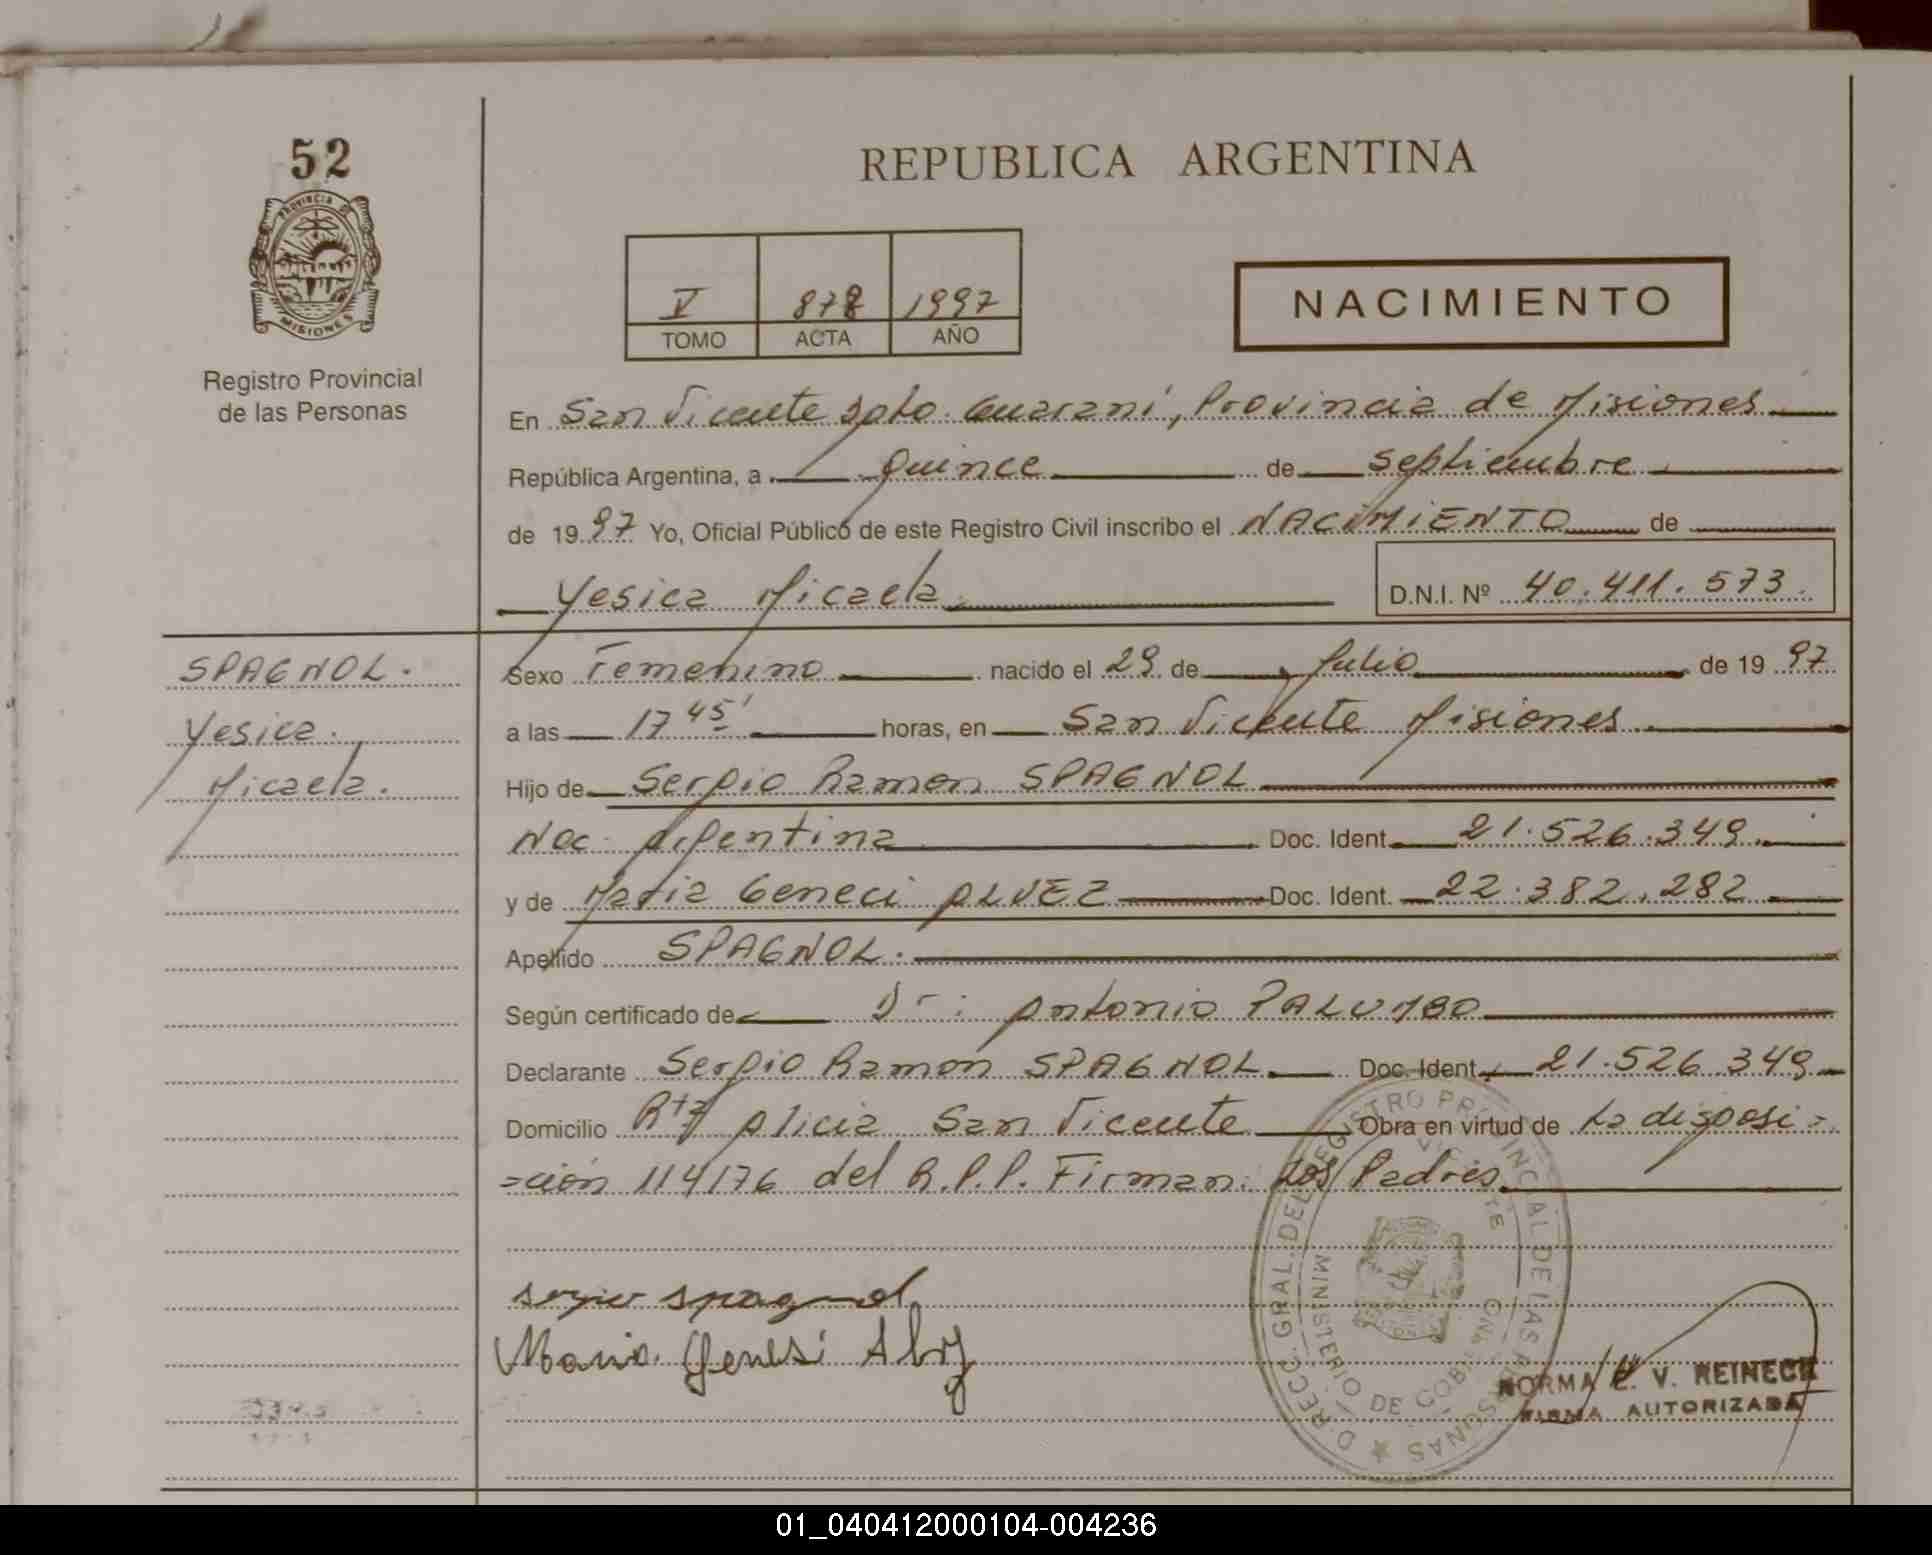 52
PROVINCIA DE
MISIONES
Registro Provincial
de las Personas
REPUBLICA ARGENTINA
V 878 1997
TOMO ACTA AÑO
NACIMIENTO
En San Vicente Dpto. Guaraní, Provincia de Misiones
República Argentina, a Quince de Septiembre
de 1997 Yo, Oficial Público de este Registro Civil inscribo el NACIMIENTO de
Yesica Micaela D.N.I. Nº 40.411.573.
SPAGNOL.
Yesica
Micaela.
Sexo Femenino nacido el 29 de Julio de 1997
a las 17 45' horas, en San Vicente Misiones
Hijo de Sergio Ramon SPAGNOL
Nac. Argentina Doc. Ident. 21.526.349
y de Maria Geneci ALVEZ Doc. Ident. 22.382.282
Apellido SPAGNOL.
Según certificado de Dr: Antonio PALUMBO
Declarante Sergio Ramon SPAGNOL Doc. Ident. 21.526.349
Domicilio Alicia San Vicente Obra en virtud de La disposi=
=ción 114/76 del R.P.P. Firman: Los Padres
sergio spagnol
Maria Genesi
DIRECC. GRAL. DEL REGISTRO PROVINCIAL DE LAS PERSONAS
MINISTERIO DE GOBIERNO
NORMA V. REINECK
FIRMA AUTORIZADA
01_040412000104-004236